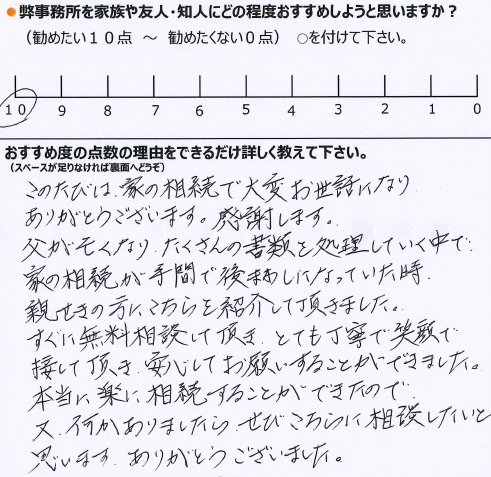 ● 弊事務所を家族や友人・知人にどの程度おすすめしようと思いますか？
（勧めたい１０点 ～ 勧めたくない０点） ○を付けて下さい。
10 9 8 7 6 5 4 3 2 1 0
おすすめ度の点数の理由をできるだけ詳しく教えて下さい。
（スペースが足りなければ裏面へどうぞ）
このたびは、家の相続で大変お世話になり
ありがとうございます。感謝します。
父が亡くなり、たくさんの書類を処理していく中で
家の相続が手間で後まわしになっていた時、
親せきの方にこちらを紹介して頂きました。
すぐに無料相談して頂き、とても丁寧で笑顔で
接して頂き、安心してお願いすることができました。
本当に楽に、相続することができたので、
又、何かありましたら、ぜひこちらに相談したいと
思います。ありがとうございました。